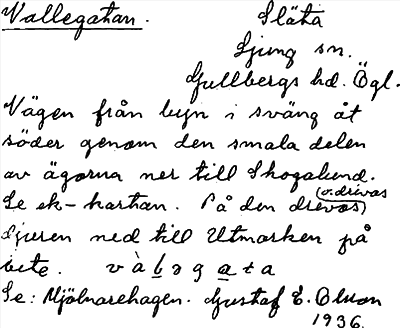 Vallegatan. Släta
Ljung sn.
Gullbergs hd. Ögl.
Vägen från byn i sväng åt
söder genom den smala delen
av ägorna ner till Skogalund.
(o. drivas
Se ek-kartan. På den drevos)
djuren ned till Utmarken på
bete. v à l ə g a t a
Se: Mjölnarehagen. Gustaf E. Olsson
1936.